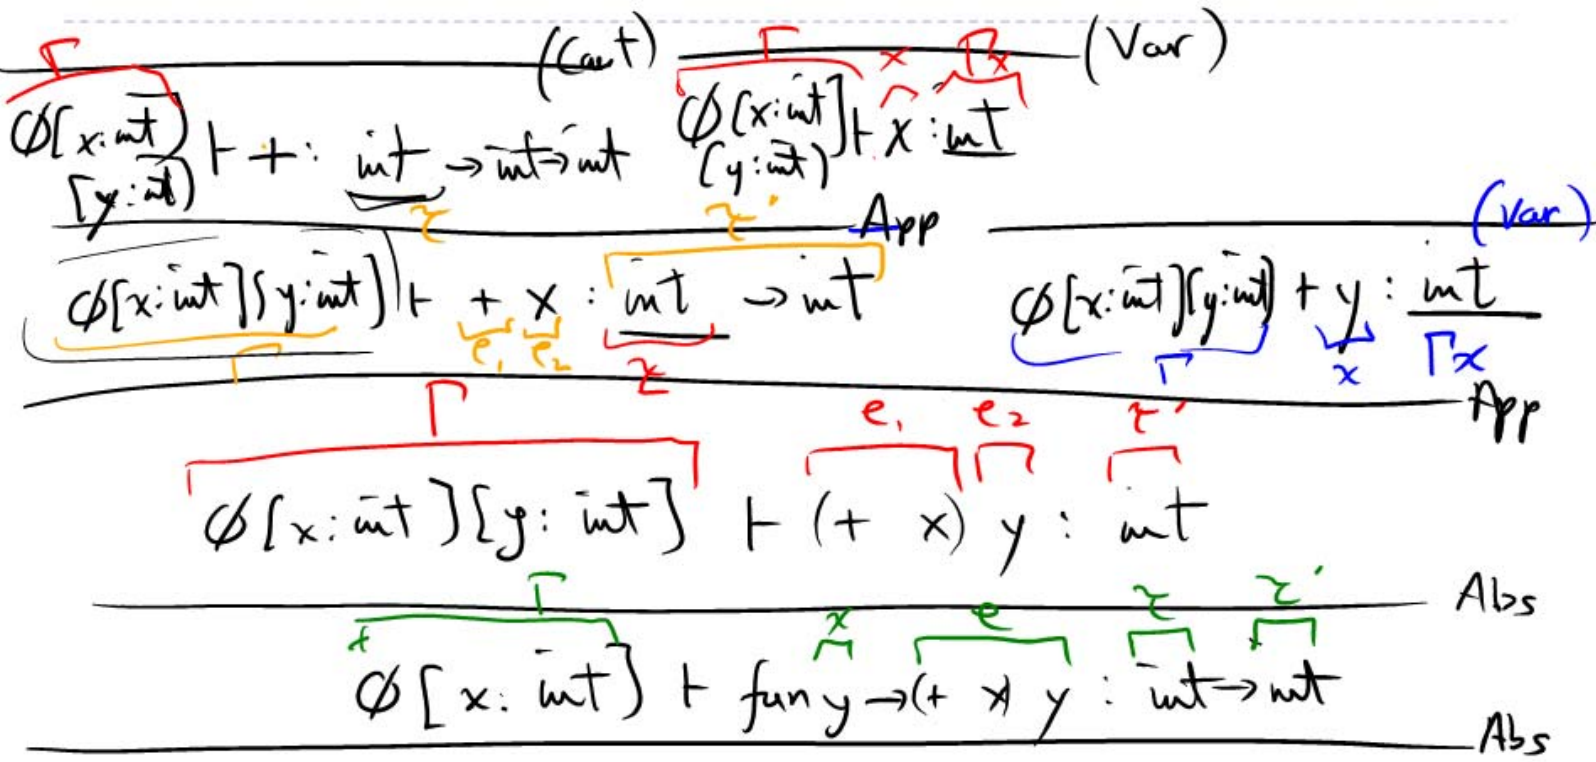 Γ (Const) Γ x Γx (Var)
∅[x:int][y:int] ⊢ +: int → int → int ∅[x:int][y:int] ⊢ x : int
τ τ' App (Var)
∅[x:int][y:int] ⊢ + x : int → int ∅[x:int][y:int] ⊢ y : int
Γ e₁ e₂ τ Γ x Γx
App
Γ e₁ e₂ τ'
∅[x:int][y:int] ⊢ (+ x) y : int
Abs
Γ x e τ τ'
∅[x:int] ⊢ fun y → (+ x) y : int → int
Abs